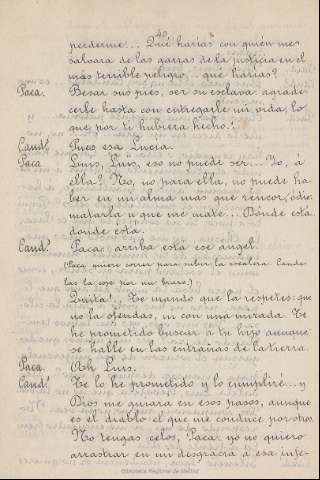 40
perderme!.. Qué harías con quién me
salvara de las garras de la justicia en el
mas terrible peligro... qué harías?
Paca. Besar sus piés, ser su esclava: agrade-
cerle hasta con entregarle mi vida lo
que por ti hubiera hecho!
Cand.s Pues esa Lucia.
Paca Luis, Luis, eso no puede ser... Yo, á
ella? No, no para ella, no puede ha-
ber en mi alma mas que rencor, ódio.
matarla ú que me mate... Donde está
donde está.
Cand.s Paca: arriba está ese ángel.
(Paca quiere correr para subir la escalera. Cande-
las la coje por un brazo.)
Quita!.. Te mando que la respetes: que
no la ofendas, ni con una mirada. Te
he prometido buscar á tu hijo aunque
se halle en las entrañas de la tierra.
Paca. Oh, Luis.
Cand.s Te lo he prometido y lo cumpliré... y
Dios me guiara en esos pasos, aunque
es el diablo el que me conduce por otros
No tengas celos, Paca: yo no quiero
arrastrar en mi desgracia á esa infe-
Biblioteca Regional de Madrid